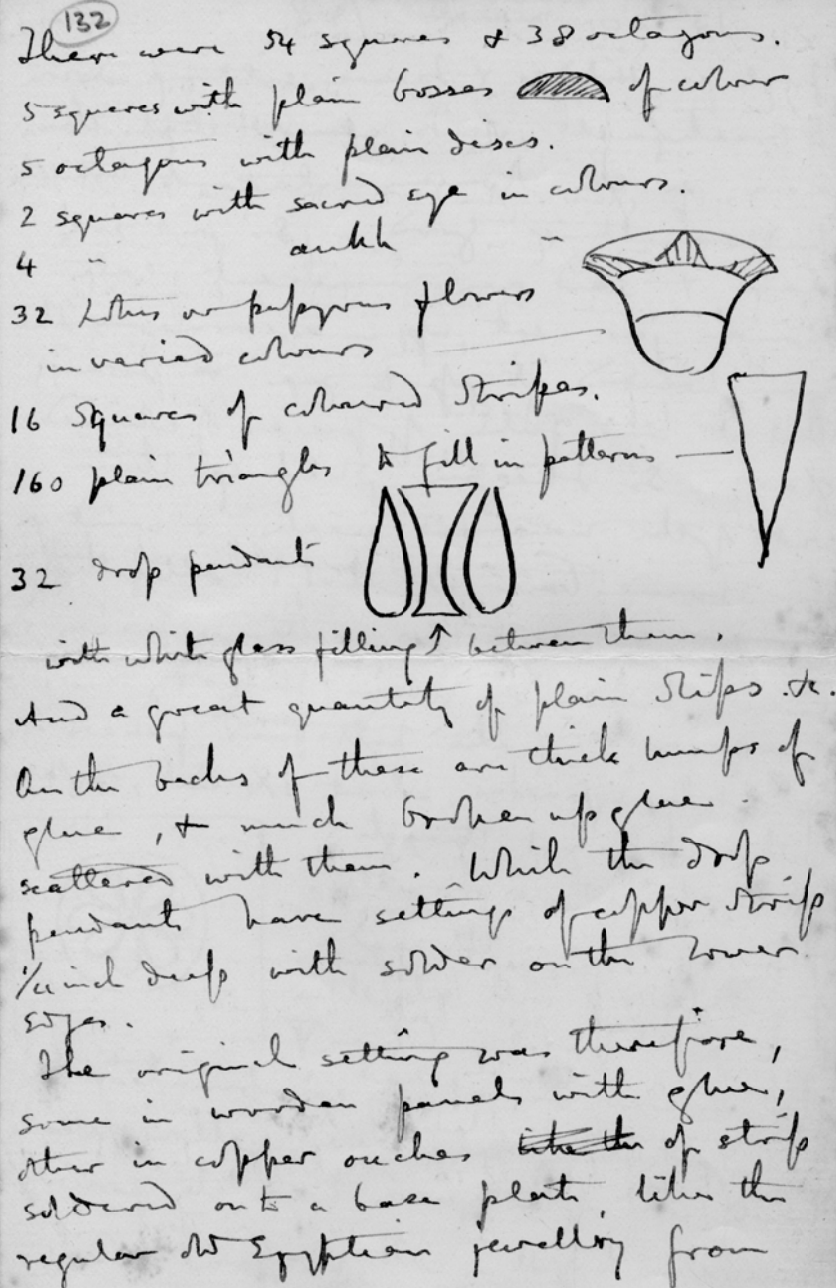 132
There were 54 squares & 38 octagons.
5 squares with plain bosses of colour
5 octagons with plain discs.
2 squares with sacred eye in colours.
4 " ankh "
32 Lotus or papyrus flowers
in varied colours
16 Squares of coloured Stripes.
160 plain triangles to fill in patterns
32 drop pendants
with white glass filling ↑ between them.
And a great quantity of plain Strips &c.
On the backs of these are thick lumps of
glue, & much broken up glue
scattered with them. While the drop
pendants have settings of copper strip
inch deep with solder on the lower
edges.
The original setting was therefore,
some in wooden panels with glue,
other in copper ouches like the of strip
soldered on to a base plate, like the
regular old Egyptian jewellery from